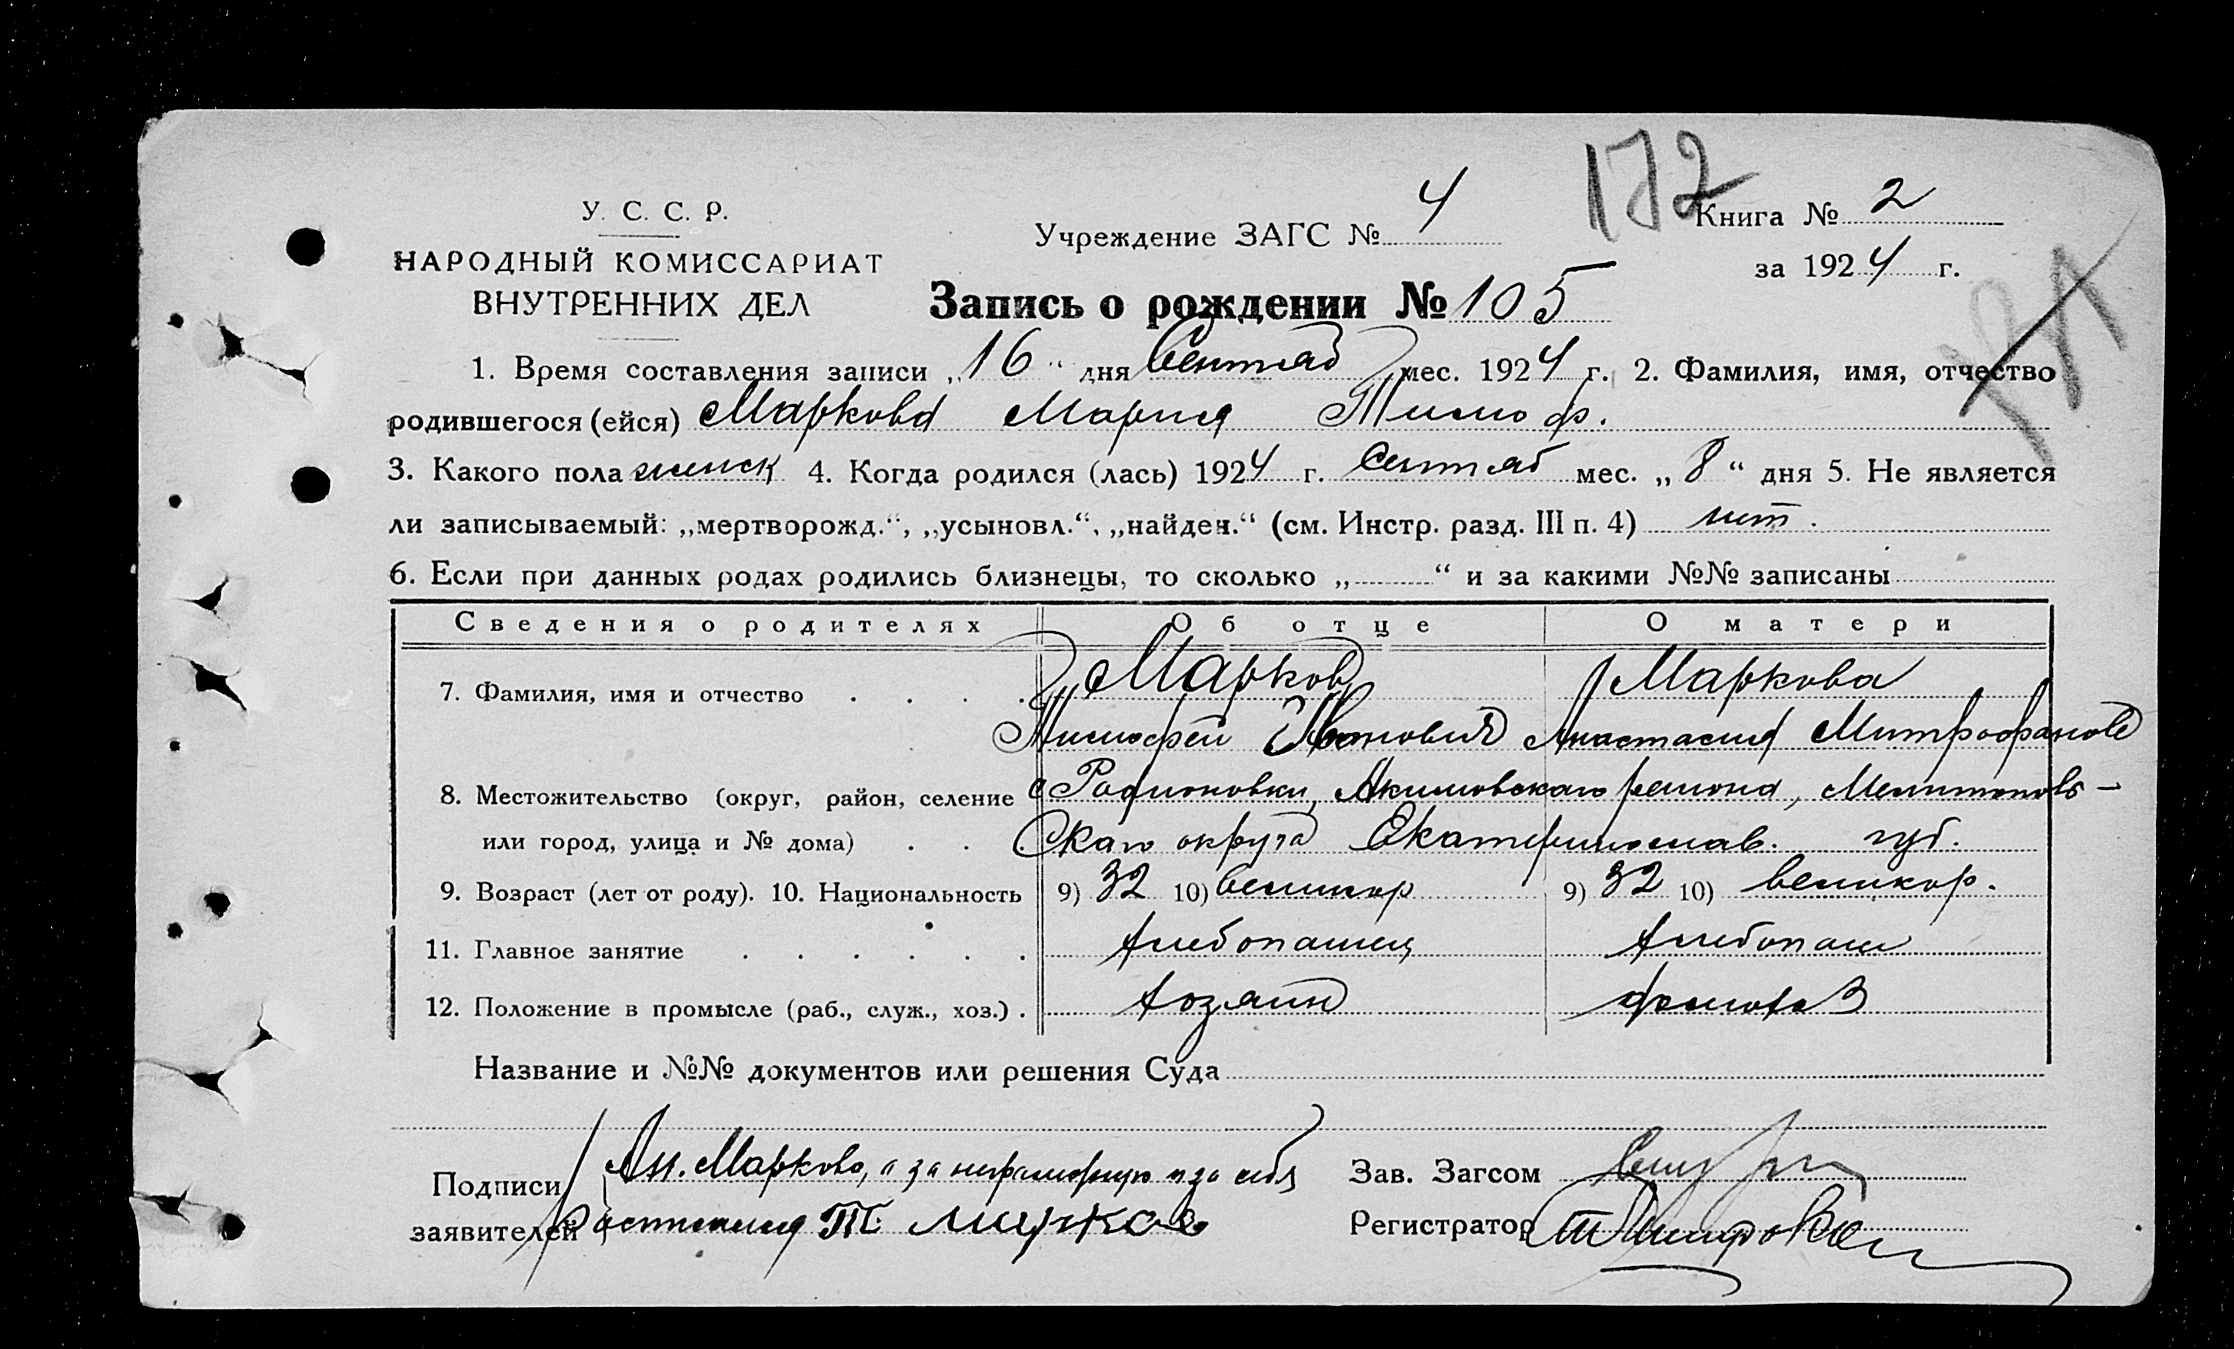 172
У. С. С. Р.
НАРОДНЫЙ КОМИССАРИАТ
ВНУТРЕННИХ ДЕЛ
Учреждение ЗАГС № 4
Книга № 2
за 1924 г.
Запись о рождении № 105
1. Время составления записи „16“ дня Сентяб мес. 1924 г. 2. Фамилия, имя, отчество
родившегося (ейся) Маркова Мария Тимоф.
3. Какого пола женск 4. Когда родился (лась) 1924 г. Сентяб мес. „8“ дня 5. Не является
ли записываемый: „мертворожд.“, „усыновл.“, „найден.“ (см. Инстр. разд. III п. 4) нет.
6. Если при данных родах родились близнецы, то сколько „ “ и за какими №№ записаны
Сведения о родителях Об отце О матери
7. Фамилия, имя и отчество Марков Маркова
Тимофей Иванович Анастасия Митрофанов
8. Местожительство (округ, район, селение с Родионовки, Акимовского района, Мелитополь-
или город, улица и № дома) скаго округа Екатеринослав. губ.
9. Возраст (лет от роду). 10. Национальность 9) 32 10) великор 9) 32 10) великор.
11. Главное занятие хлебопашец хлебопаш
12. Положение в промысле (раб., служ., хоз.) хозяин
Название и №№ документов или решения Суда
Подписи Ан. Маркова, а за неграмотную и за себя
заявителей расписался Т. Марков
Зав. Загсом
Регистратор